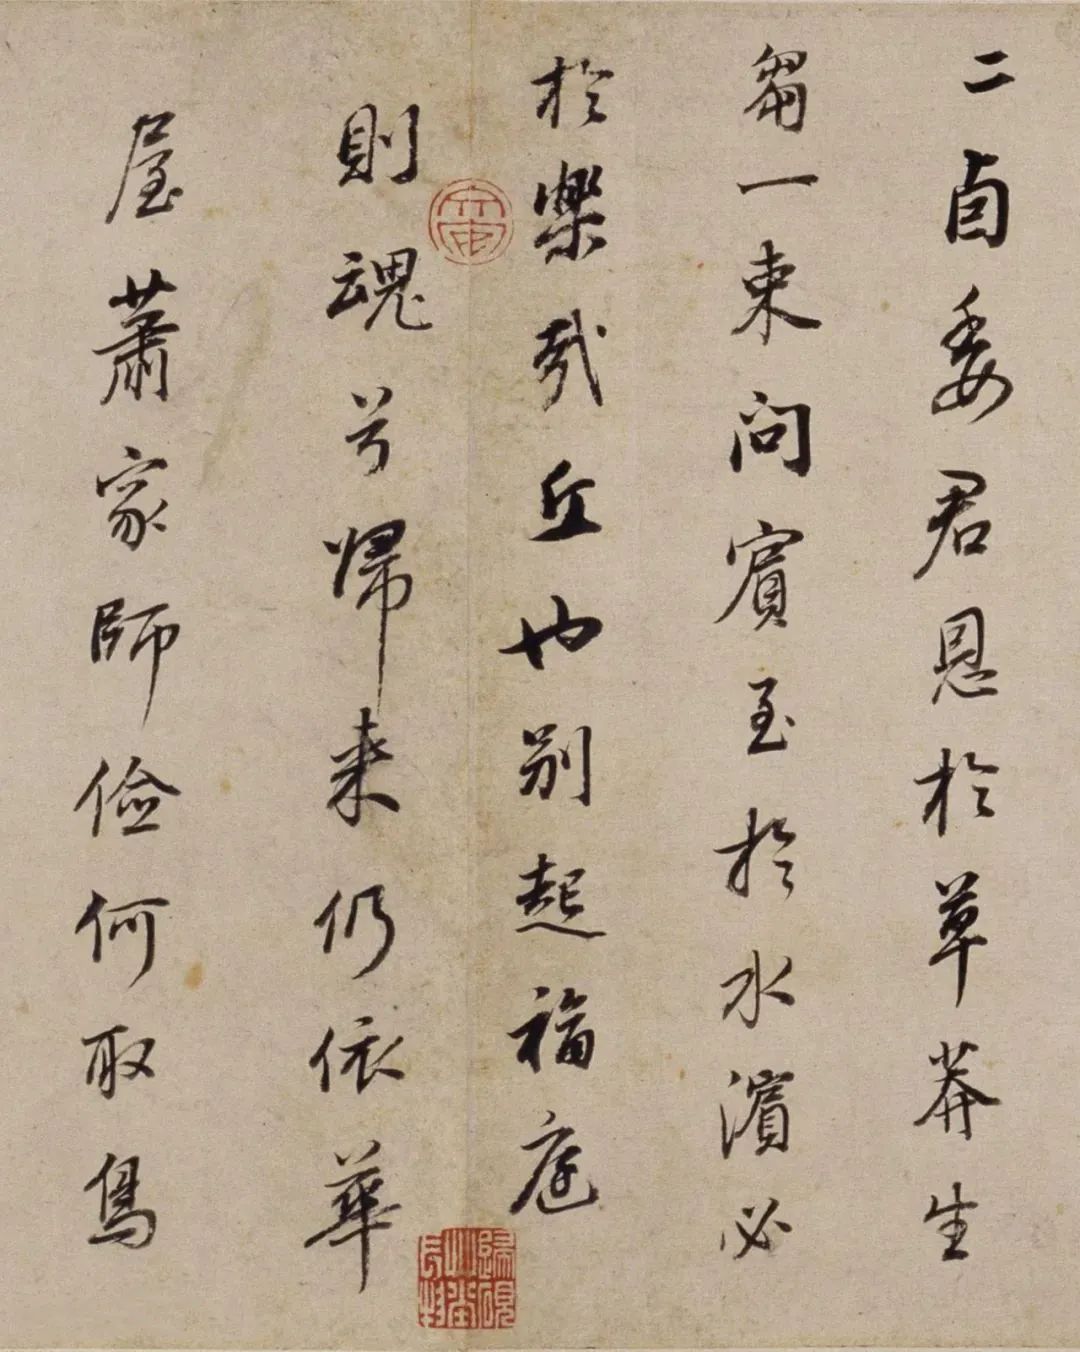 二卣委君恩於草莽生
芻一束問賓至於水濱必
於樂哉丘也別起福庭
則魂兮歸来仍依華
屋蕭家師儉何取鳥